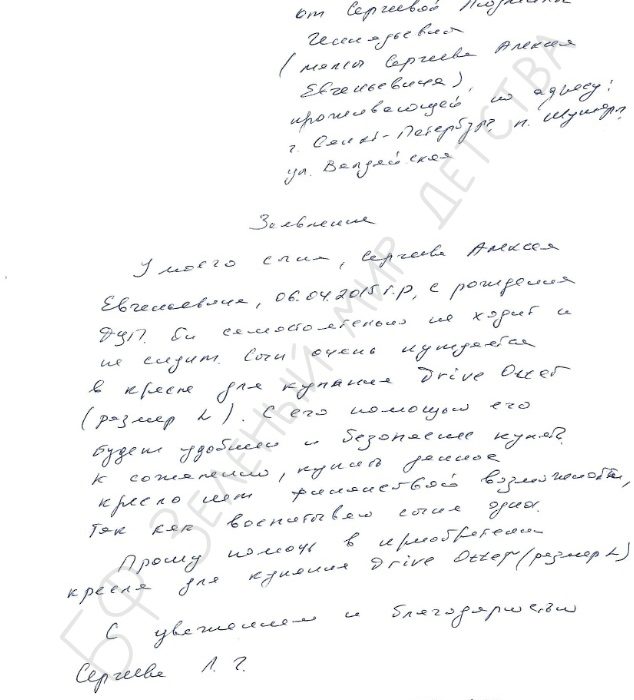 от Сергеевой Людмилы
Геннадьевны
(мамы Сергеева Алексея
Евгеньевича)
проживающей по адресу:
г. Санкт-Петербург, п. Шушары,
ул. Валдайская
Заявление
У моего сына, Сергеева Алексея
Евгеньевича, 06.04.2015 г.р, с рождения
ДЦП. Он самостоятельно не ходит и
не сидит. Сын очень нуждается
в кресле для купания Drive Otter
(размер L). С его помощью его
будет удобнее и безопаснее купать.
К сожалению, купить данное
кресло нет финансовой возможности,
так как воспитываю сына одна.
Прошу помочь в приобретении
кресла для купания Drive Otter (размер L)
С уважением и благодарностью
Сергеева Л. Г.
БФ ЗЕЛЕНЫЙ МИР ДЕТСТВА